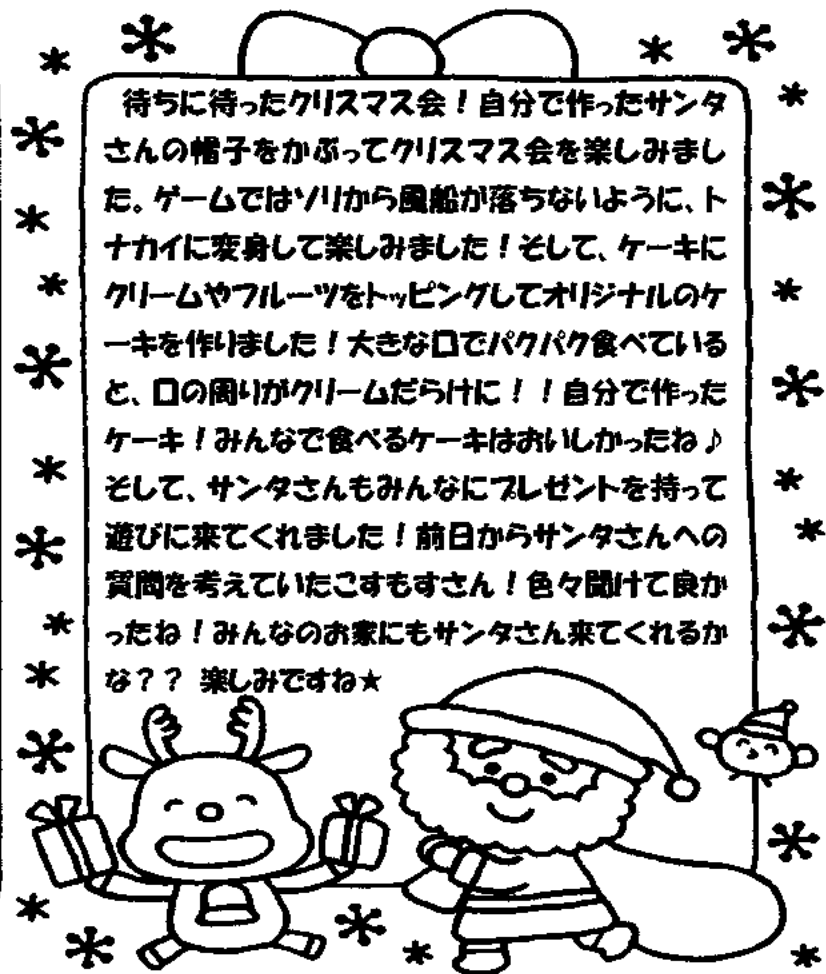 待ちに待ったクリスマス会！自分で作ったサンタ
さんの帽子をかぶってクリスマス会を楽しみまし
た。ゲームではソリから風船が落ちないように、ト
ナカイに変身して楽しみました！そして、ケーキに
クリームやフルーツをトッピングしてオリジナルのケ
ーキを作りました！大きな口でパクパク食べている
と、口の周りがクリームだらけに！！自分で作った
ケーキ！みんなで食べるケーキはおいしかったね♪
そして、サンタさんもみんなにプレゼントを持って
遊びに来てくれました！前日からサンタさんへの
質問を考えていたこすもすさん！色々聞けて良か
ったね！みんなのお家にもサンタさん来てくれるか
な？？ 楽しみですね★